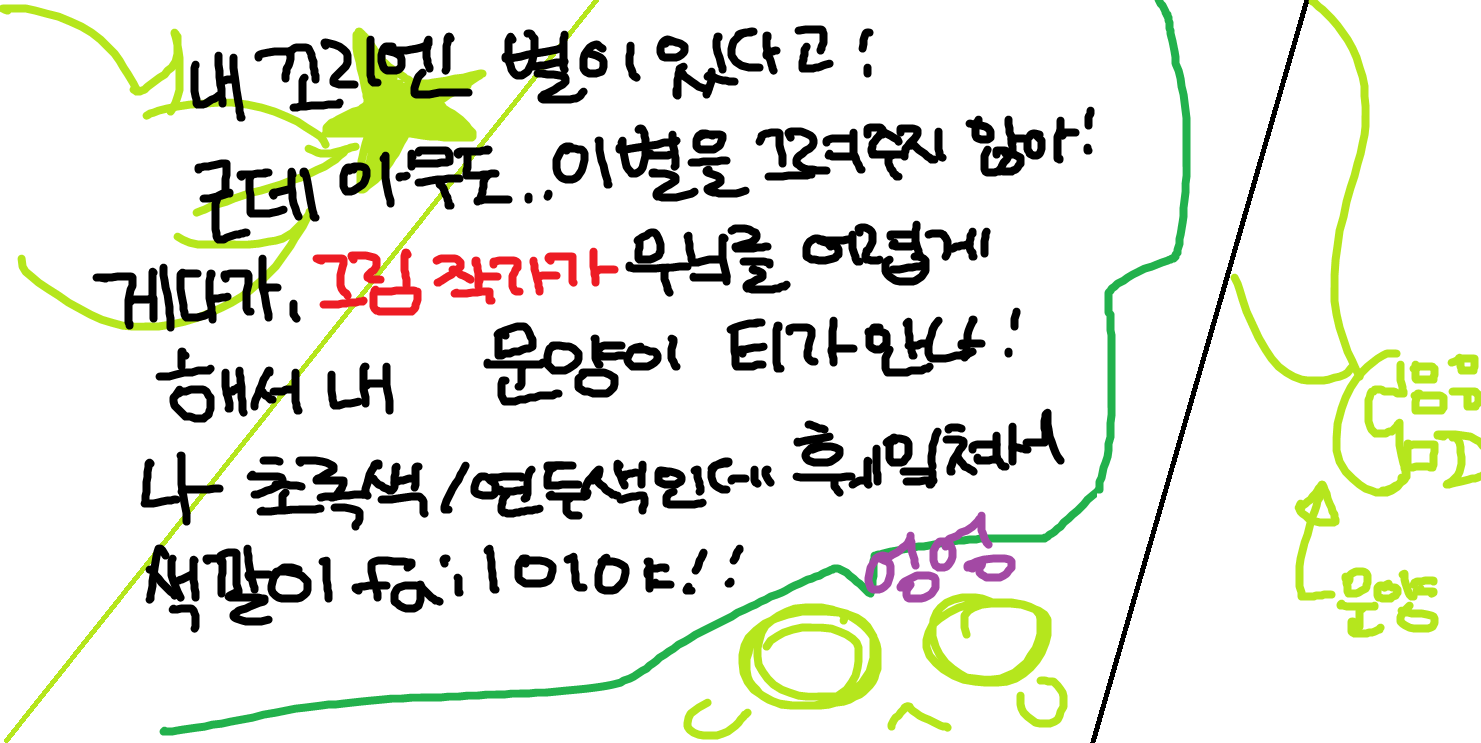 내 꼬리엔 별이 있다고!
근데 아무도.. 이별을 그려주지 않아!
게다가, 그림 작가가 무늬를 어렵게
해서 내 문양이 티가 안나!
나 초록색/연두색인데 훼일쳐서
색깔이 fail이이야!!
엉엉
문양